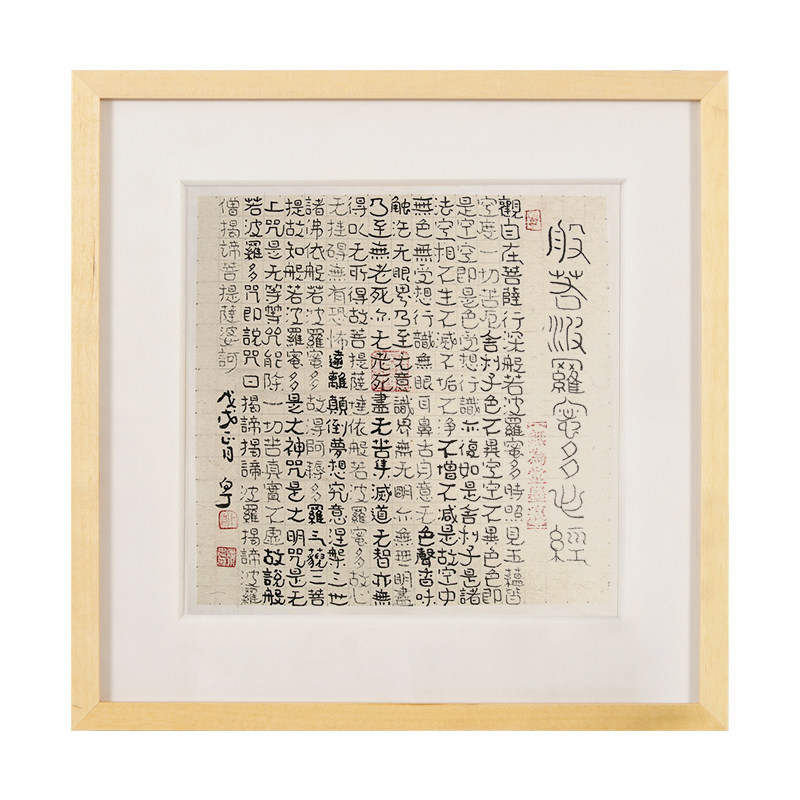 般若波羅蜜多心經
觀自在菩薩行深般若波羅蜜多時照見五蘊皆
空度一切苦厄舍利子色不異空空不異色色即
是空空即是色受想行識亦復如是舍利子是諸
法空相不生不滅不垢不淨不增不減是故空中
無色無受想行識無眼耳鼻舌身意无色聲香味
觸法无眼界乃至无意識界無无明亦無無明盡
乃至無老死亦无老死盡无苦集滅道无智亦無
得以无所得故菩提薩埵依般若波羅蜜多故心
无挂碍無有恐怖遠離顛倒夢想究竟涅槃三世
諸佛依般若波羅蜜多故得阿耨多羅三藐三菩
提故知般若波羅蜜多是大神咒是大明咒是无
上咒是无等等咒能除一切苦真實不虛故說般
若波羅多咒即說咒曰揭諦揭諦波羅揭諦波羅
僧揭諦菩提薩婆訶
戊戌正月
無為堂